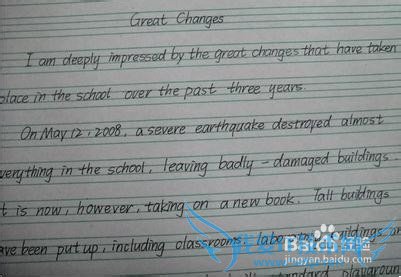 Great Changes
I am deeply impressed by the great changes that have taken
place in the school over the past three years.
On May 12, 2008, a severe earthquake destroyed almost
verything in the school, leaving badly-damaged buildings.
t is now, however, taking on a new book. Tall buildings
ave been put up, including classrooms, buildings
standard playground
Baidu
jingyan.baidu.com